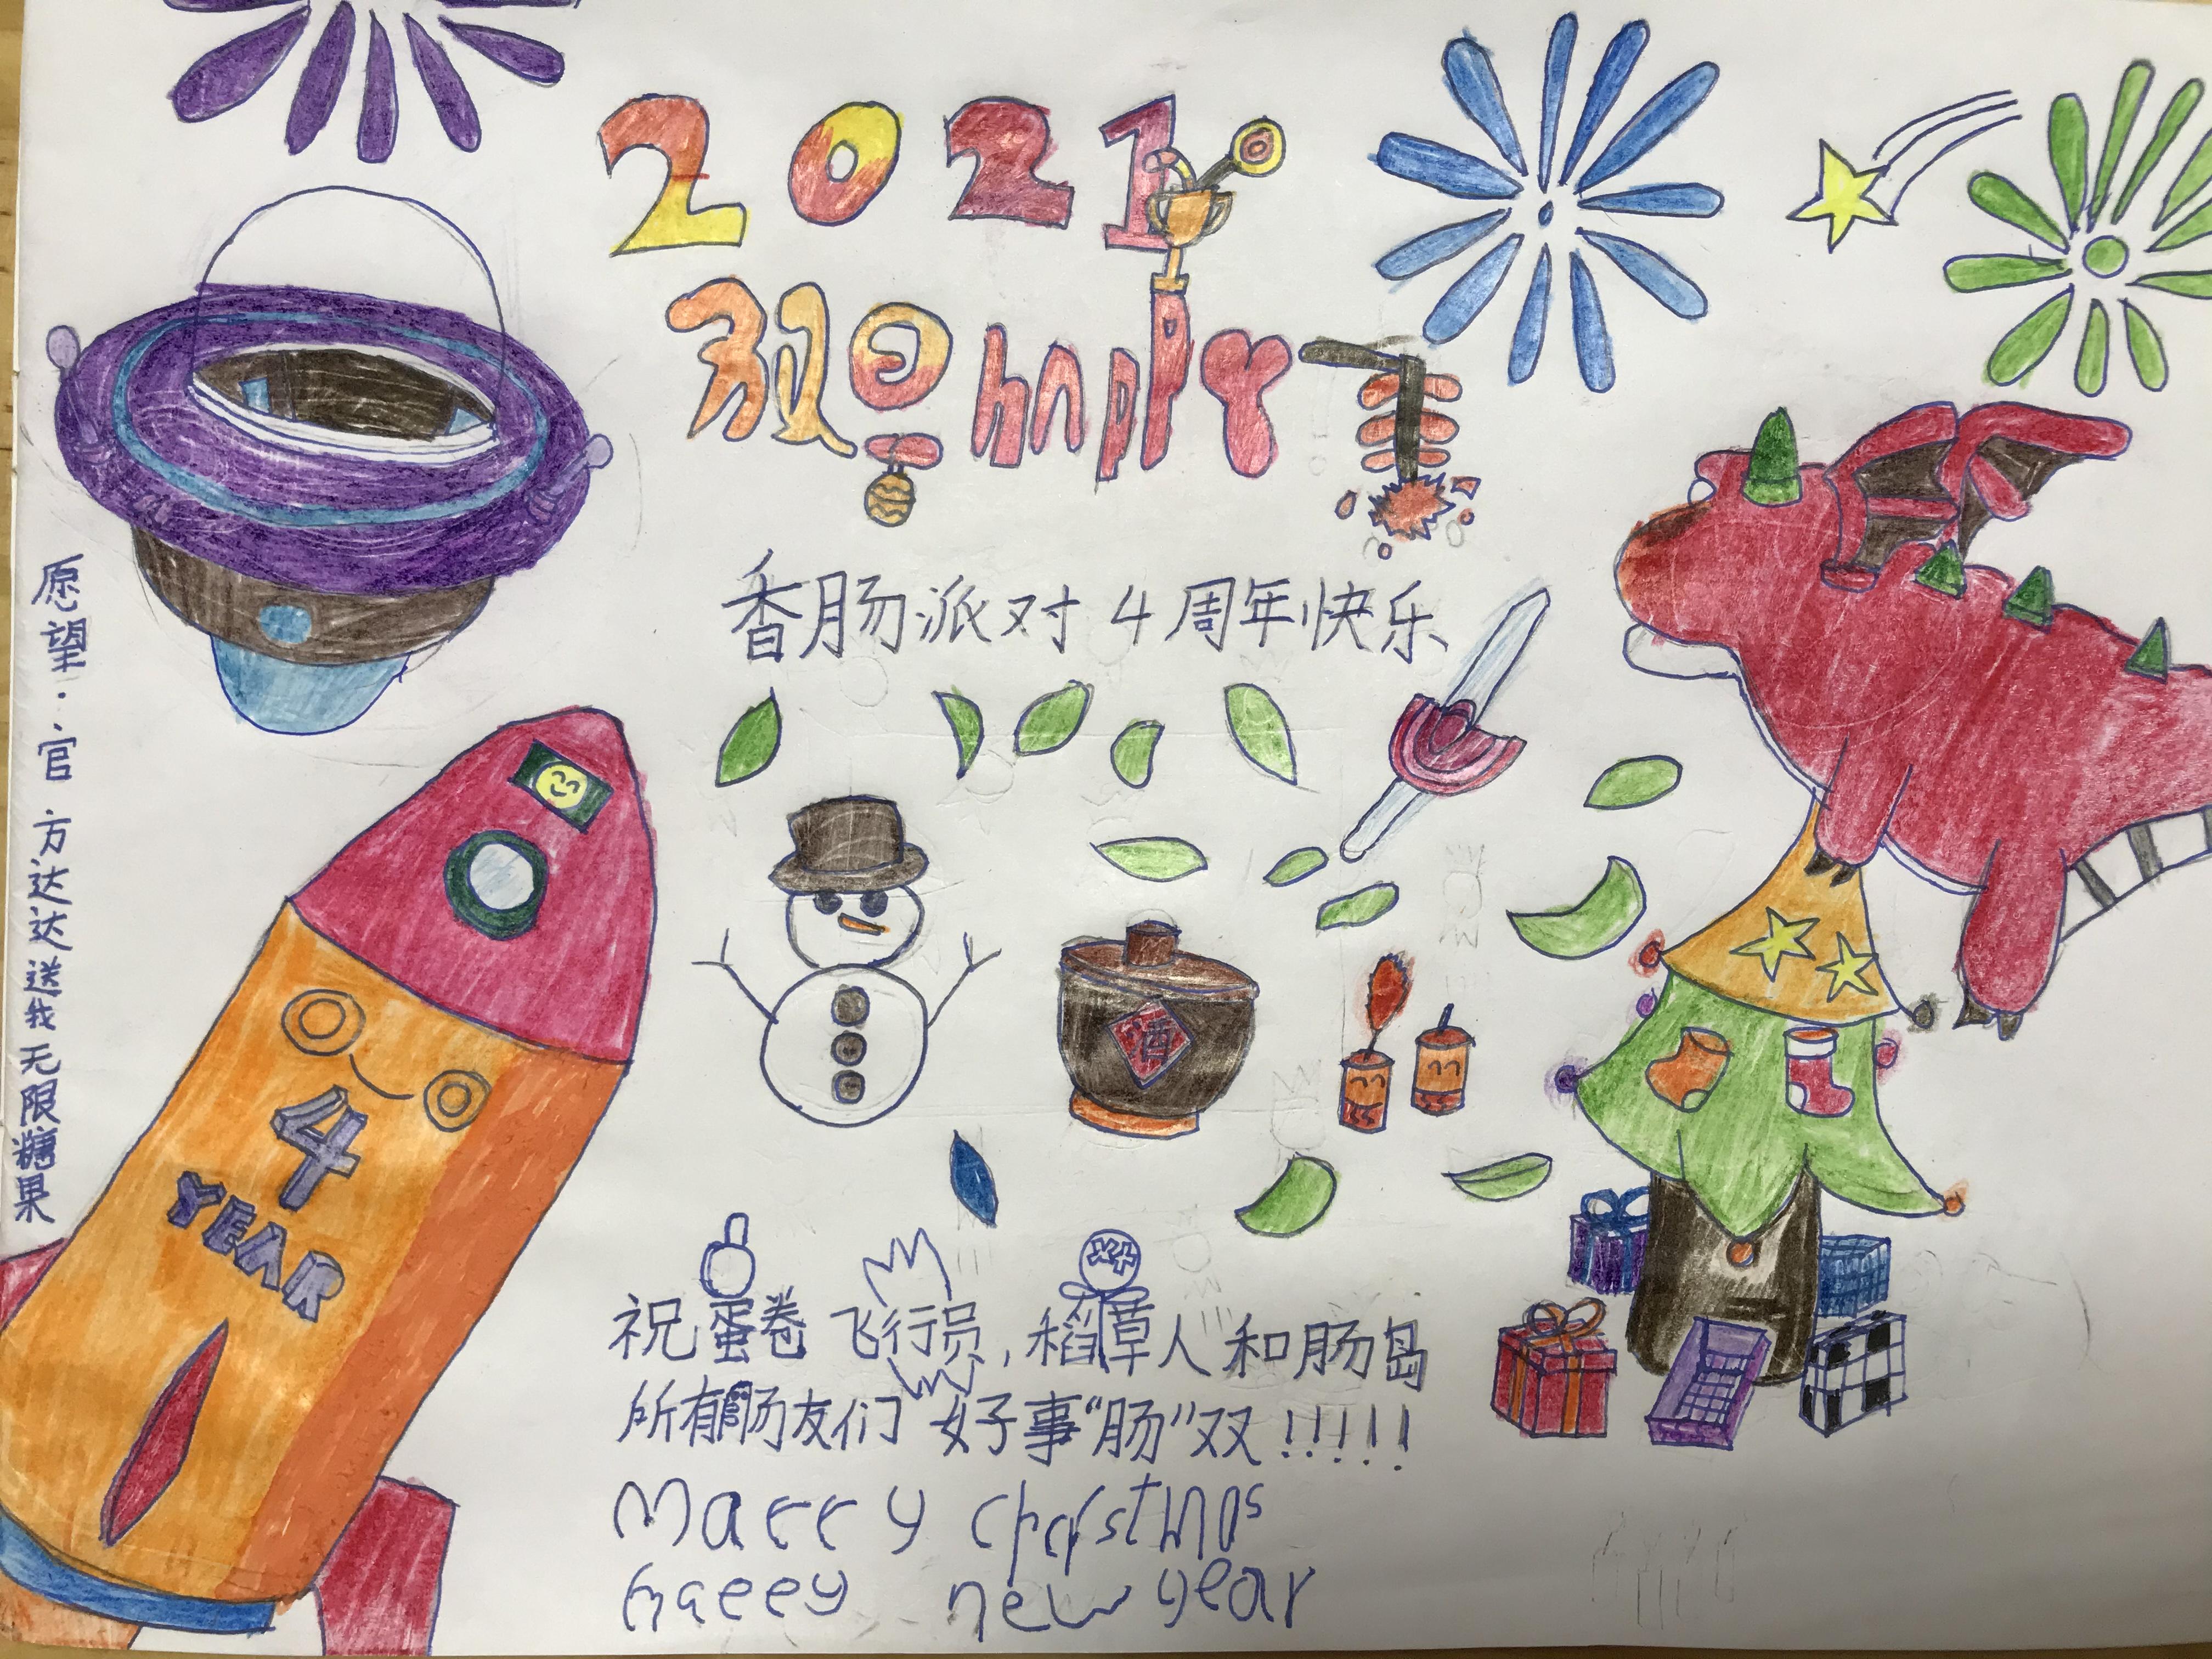 2021
双旦happy
香肠派对4周年快乐
愿望:官方达达达送我无限糖果
4
YEAR
酒
祝蛋卷飞行员,稻草人和肠岛
所有肠友们"好事"肠"双!!!!!
Marry christmas
haeey new year